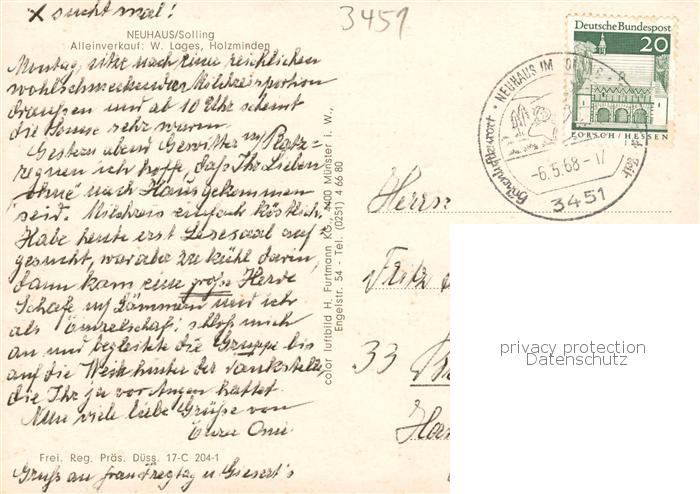 x sucht mal!
3451
NEUHAUS/Solling
Alleinverkauf: W. Lages, Holzminden
Montag, sitze nach eine reichlichen
wohlschmeckenden Milchreisportion
draußen und ab 10 Uhr scheint
die Sonne sehr warm.
Gestern abend Gewitter m/ Platz=
regnen ich hoffe, daß Ihr Lieben
"ohne" nach Haus gekommen
seid. Milchreis einfach köstlich.
Habe heute erst Lesesaal auf-
gesucht, war aber zu kühl darin,
dann kam eine große Herde
Schafe m/ Lämmern und ich
als Einzelschaf: schloß mich
an und begleitete die Gruppe bis
auf die Weide hinter der Tankstelle,
die Ihr ja vor Augen hattet.
Nun viele liebe Grüße von
Eurer Omi.
Frei. Reg. Präs. Düss. 17-C 204-1
Gruß an
color luftbild H. Furtmann KG., 4400 Münster i. W.,
Engelstr. 54 - Tel. (0251) 4 66 80
Deutsche Bundespost
20
LORSCH/HESSEN
NEUHAUS IM SOLLING
Höhenluftkurort
-6.5.68-17
3451
Herrn
Fritz
33
privacy protection
Datenschutz